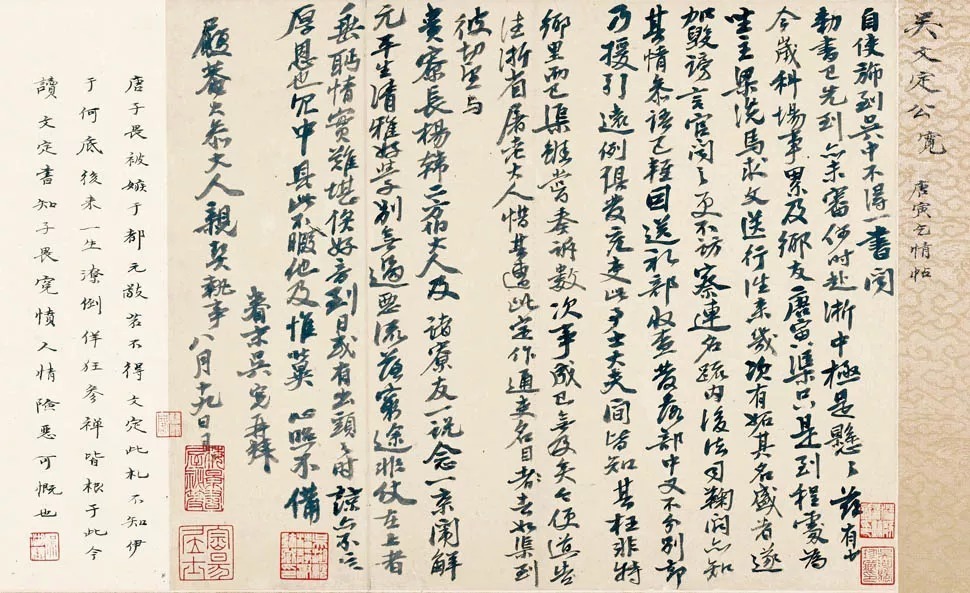 吳文定公寬 唐寅乞情帖
自使斾到吳中不得一書聞
勅書已先到亦未審何時赴浙中極是懸〻茲有少
今歲科場事累及鄉友唐寅渠只是到程處為
坐主梁洗馬求文送行往來幾次有妬其名盛者遂
加毀謗言官聞之更不訪察連名疏內後法司鞫問亦知
其情參語已輕因送禮部收查發落部中又不分別却
乃援引遠例俱發充吏此事士大夫間皆知其枉非特
鄉里而已渠雖嘗奏訴數次事成已無及矣今便道告
往浙省屠老大人惜其遭此定作通吏名目者去如渠到
彼切望與
貴寮長楊韓二方伯大人及諸寮友一說念一京闈解
元平生清雅好學別無過惡流落窮途非仗在上者
垂眄情實難堪俟好音到日或有出頭之時諒亦不忘
厚恩也冗中具此不暇他及惟冀心照不備
眷末吳寬再拜
履菴大參大人親契執事八月十九日具
唐子畏被嫉于都元敬若不得文定此札不知伊
于何底後來一生潦倒佯狂參禪皆根于此今
讀文定書知子畏冤憤人情險惡可慨也